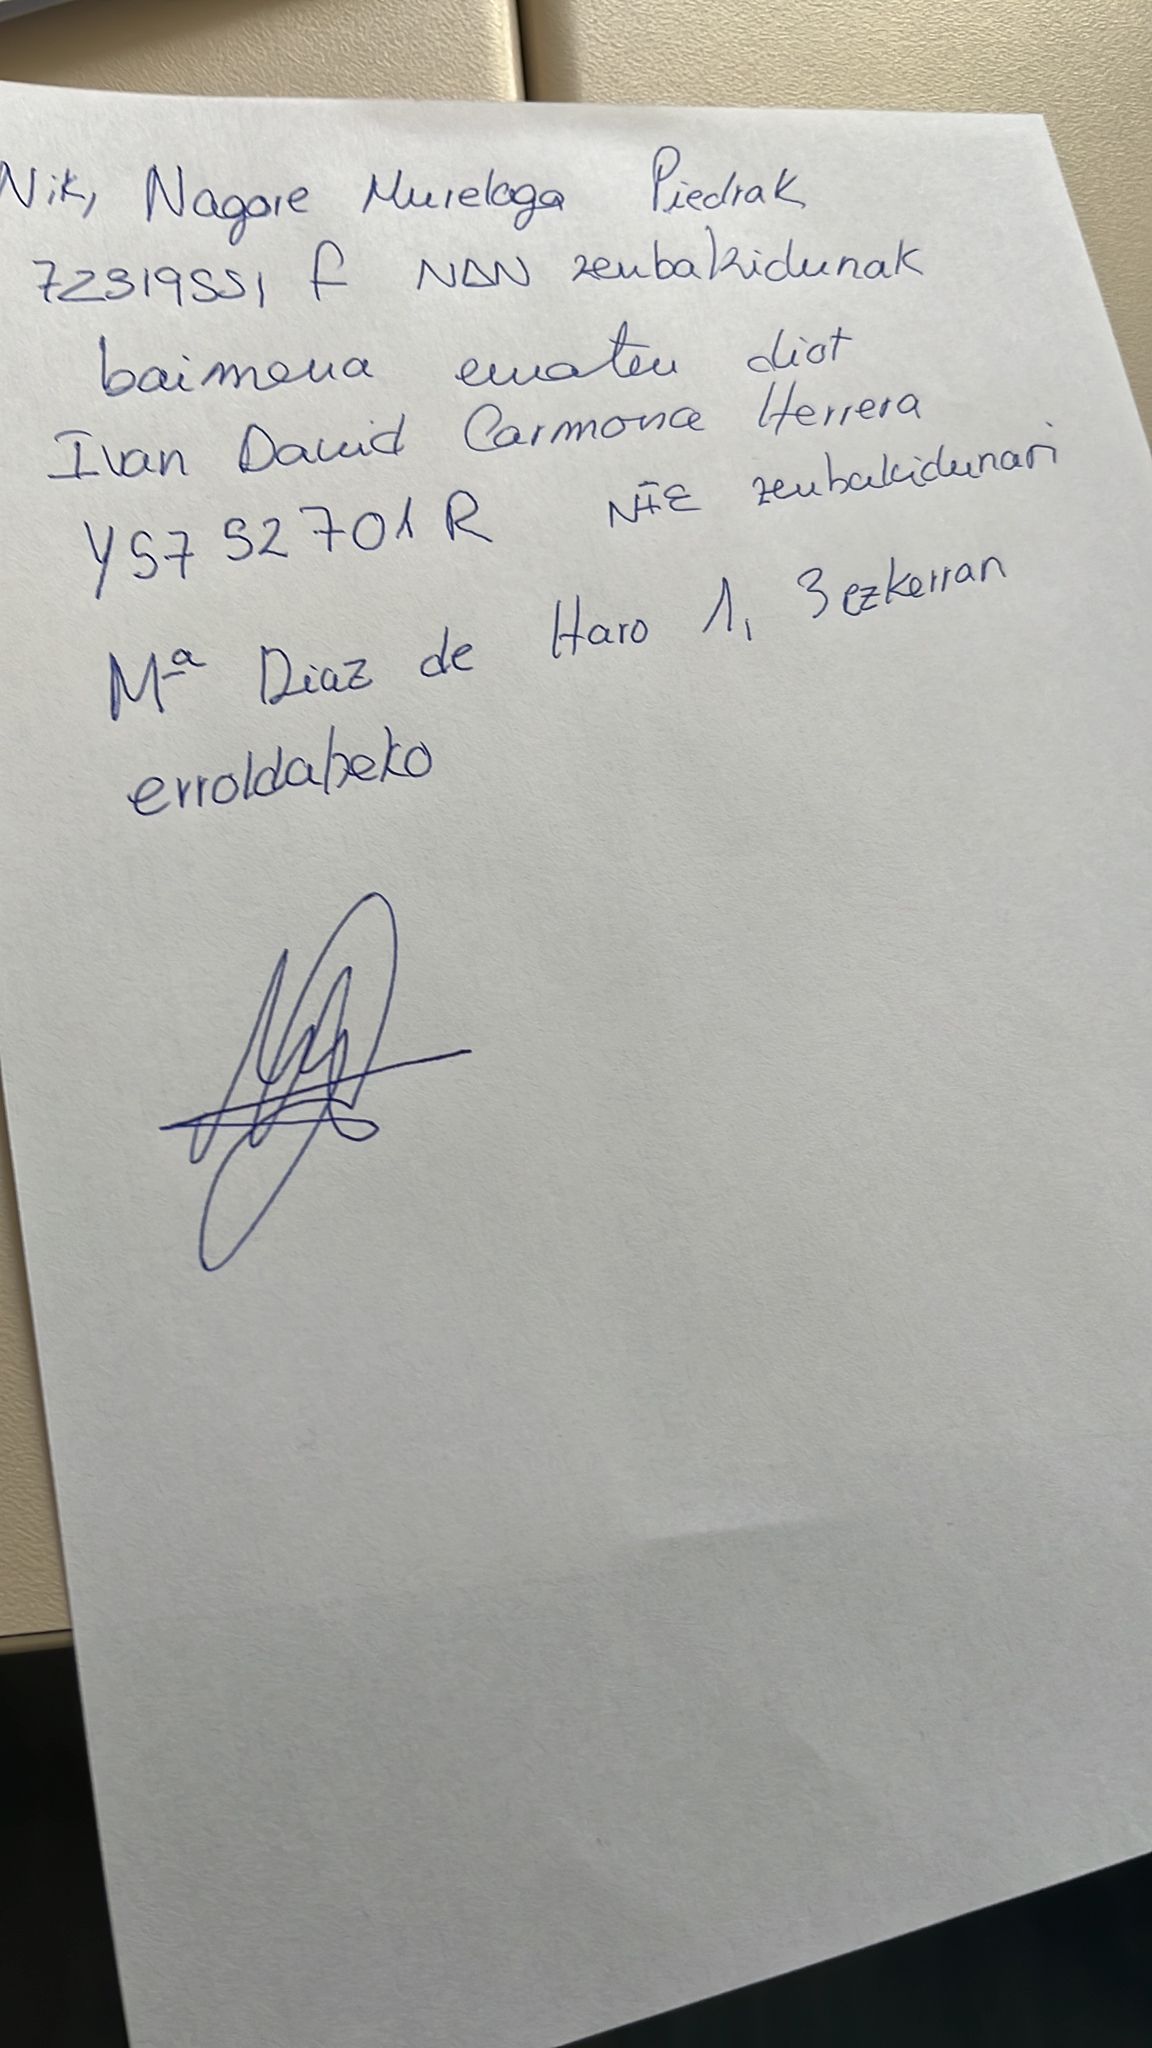 Nik, Nagore Murelaga Piedrak
72319551 F NAN zenbakidunak
baimena ematen diot
Ivan David Carmona Herrera
Y5752701R NIE zenbakidunari
Mª Diaz de Haro 1, 3 ezkerran
erroldatzeko